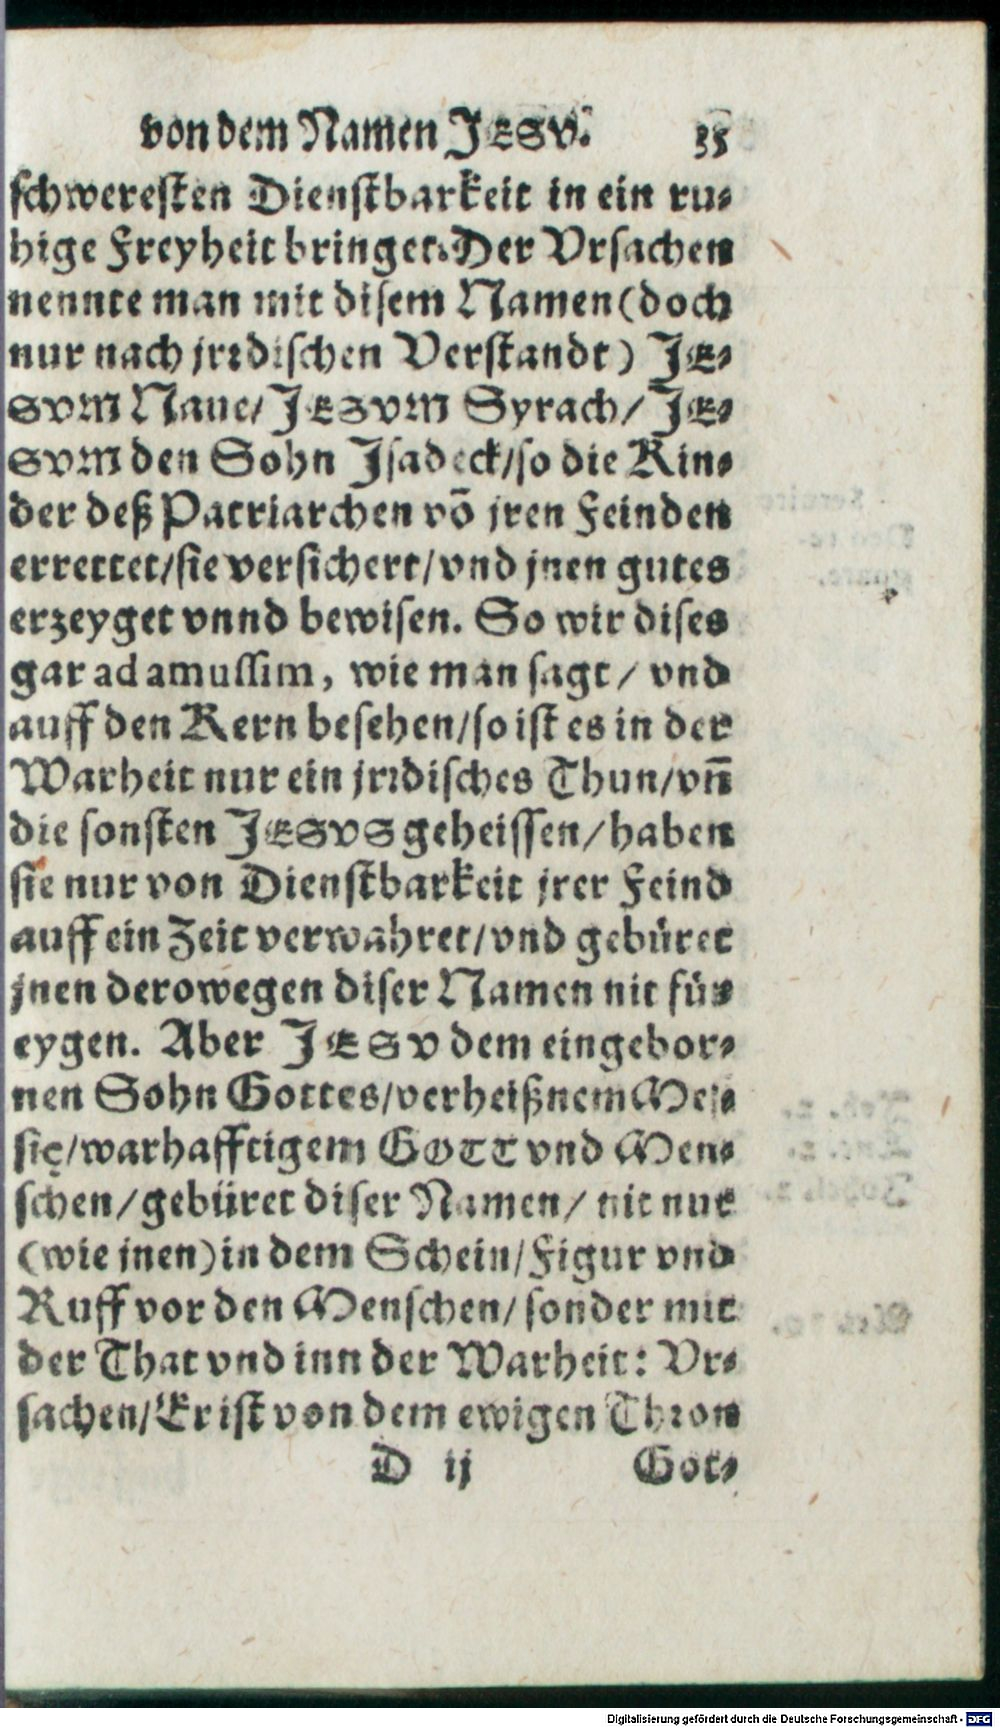 von dem Namen JESV. 35
schweresten Dienstbarkeit in ein ru⸗
hige Freyheit bringet. Der Vrsachen
nennte man mit disem Namen (doch
nur nach jrꝛdischen Verstandt) JE⸗
SVM Naue/ JESVM Syrach/ JE⸗
SVM den Sohn Isadeck/ so die Kin⸗
der deß Patriarchen võ jren Feinden
errettet/ sie versichert/ vnd jnen gutes
erzeyget vnnd bewisen. So wir dises
gar ad amussim, wie man sagt/ vnd
auff den Kern besehen/ so ist es in der
Warheit nur ein jrꝛdisches Thun/ vñ
die sonsten JESVS geheissen/ haben
sie nur von Dienstbarkeit jrer Feind
auff ein Zeit verwahret/ vnd gebüret
jnen derowegen diser Namen nit für
eygen. Aber JESV dem eingebor⸗
nen Sohn Gottes/ verheißnem Mes⸗
się/ warhafftigem GOTT vnd Men⸗
schen/ gebüret diser Namen/ nit nur
(wie jnen) in dem Schein/ Figur vnd
Ruff vor den Menschen/ sonder mit
der That vnd inn der Warheit: Vr⸗
sachen/ Er ist von dem ewigen Thron
D ij Got⸗
Digitalisierung gefördert durch die Deutsche Forschungsgemeinschaft - DFG